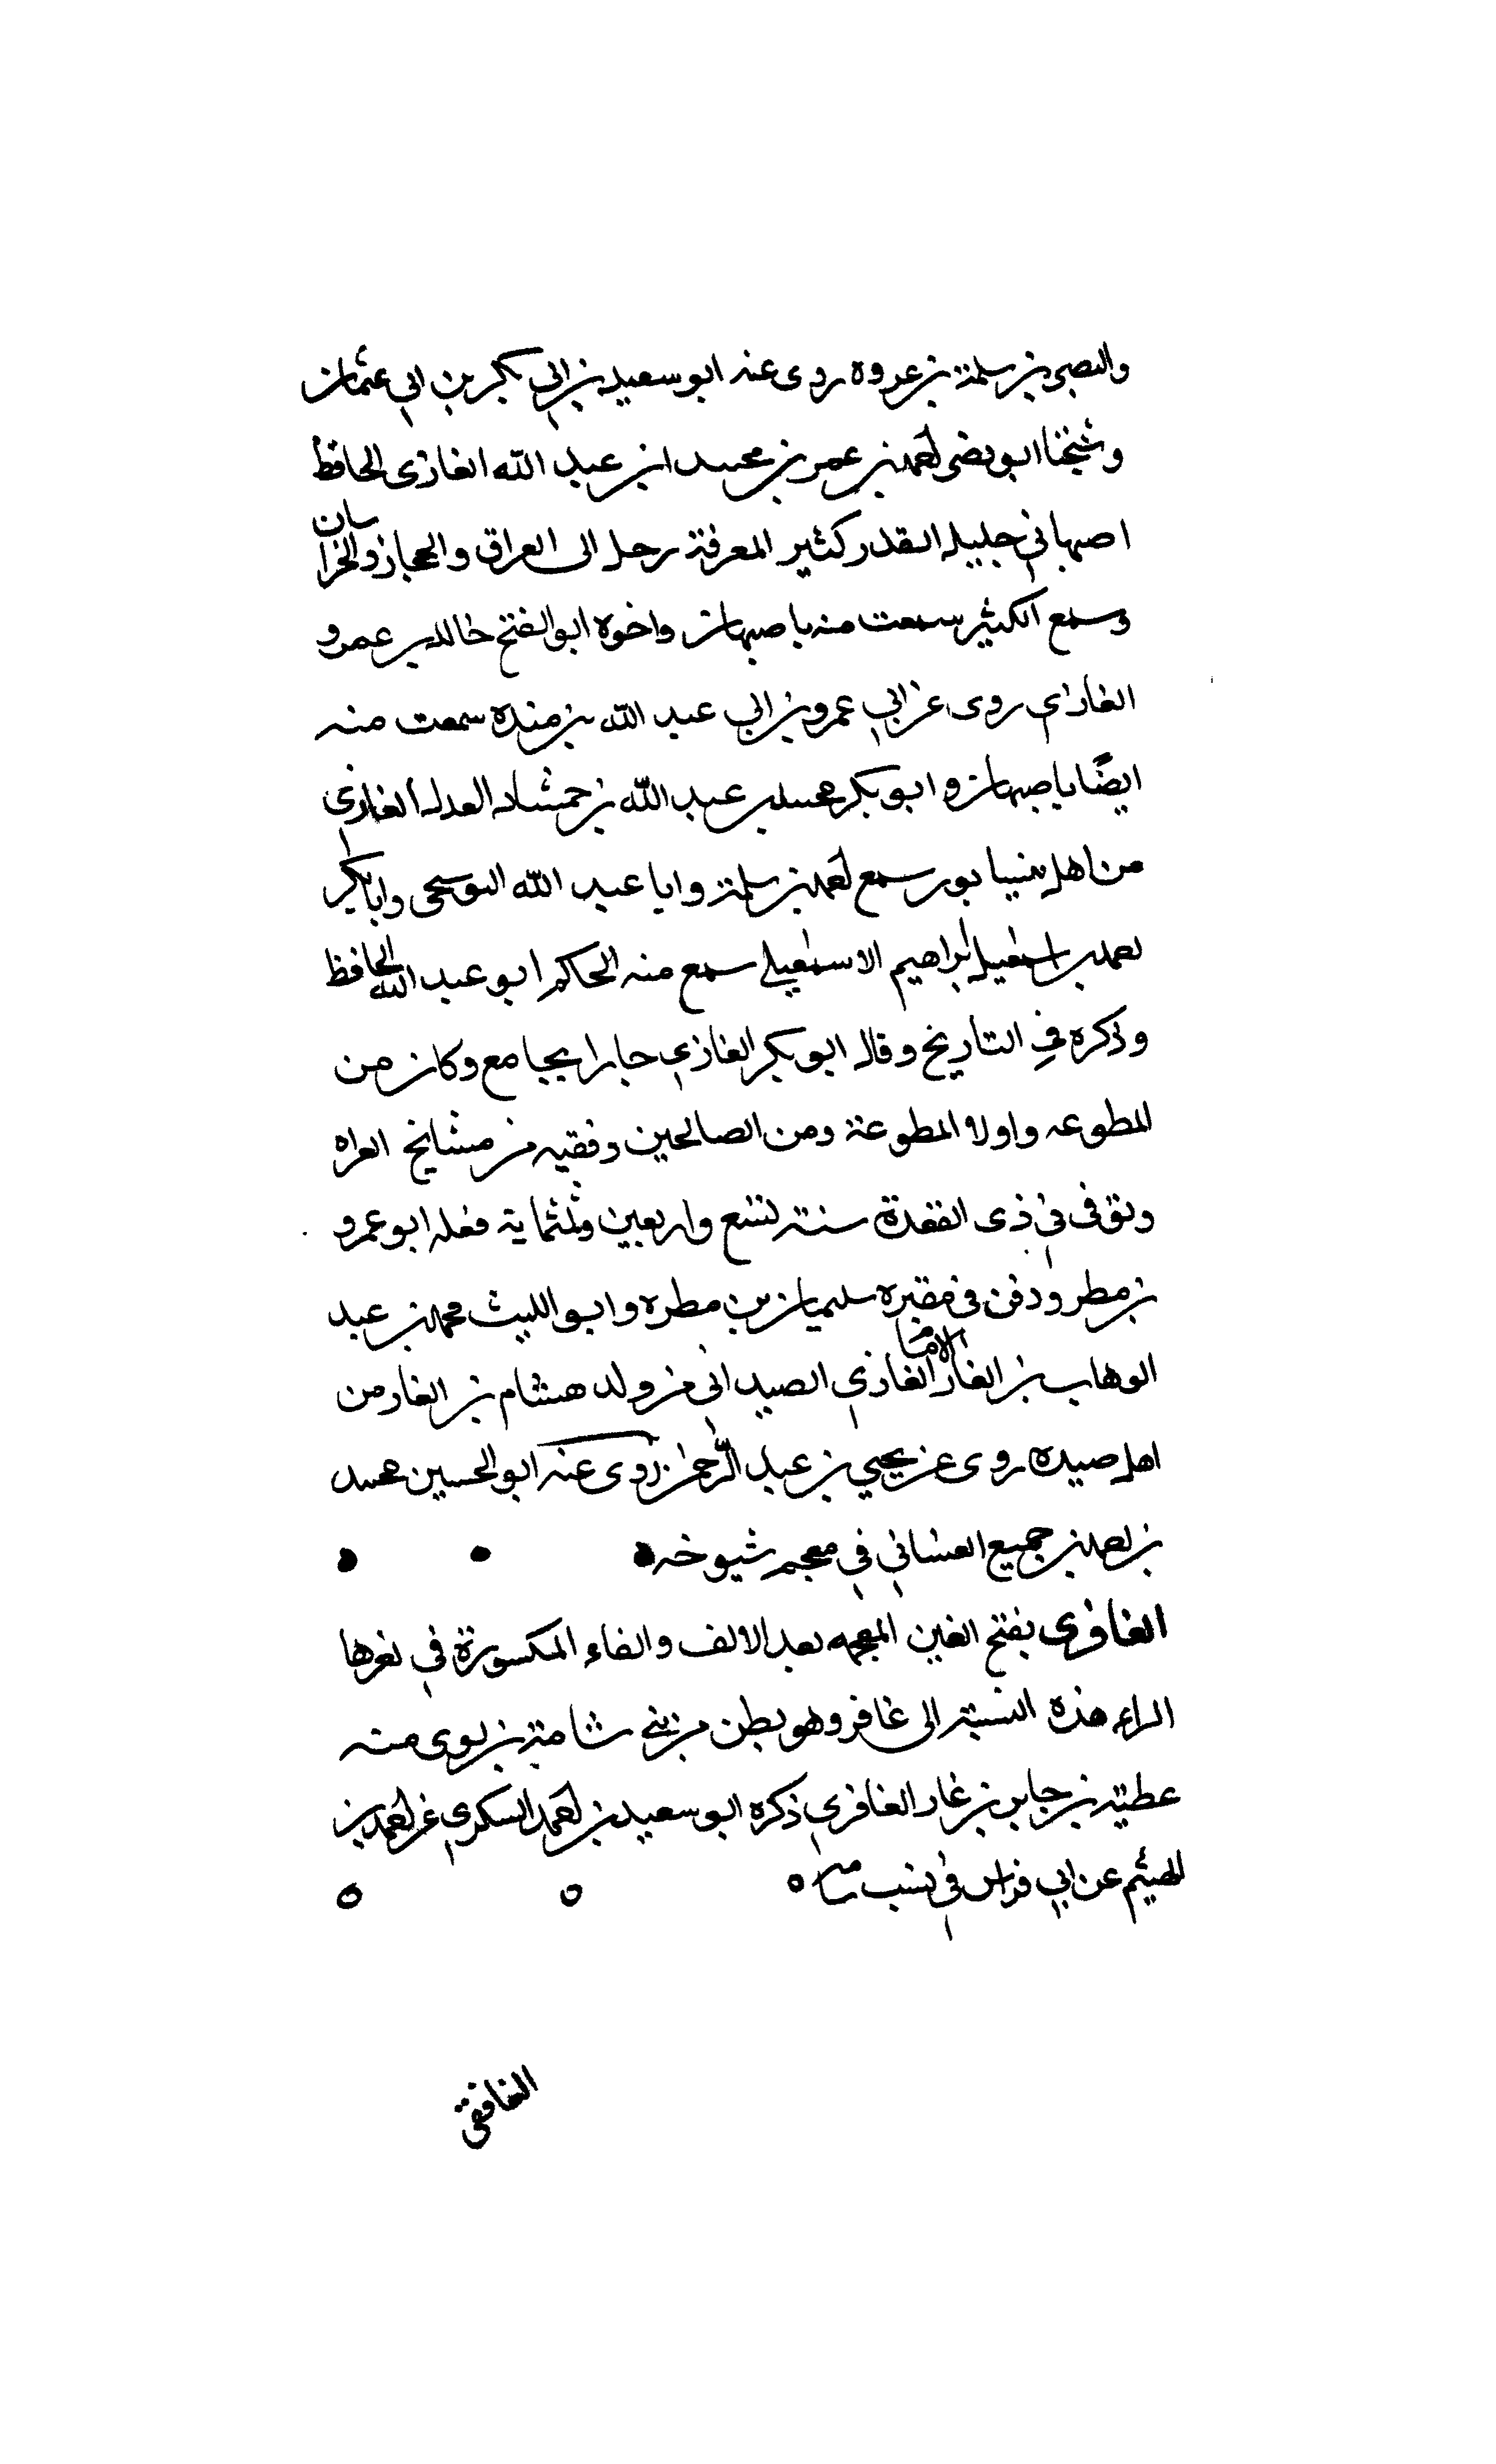 والنضر بن سلمة بن عروه روى عنه ابو سعيد بن ابي بكر بن ابي عثمان
وشيخنا ابو نصر احمد بن عمر بن محمد ابن عبد الله الغازى الحافظ
اصبهاني جليل القدر كثير المعرفة رحل الى العراق والحجاز والخراسان
وسمع الكثير سمعت منه باصبهان واخوه ابو الفتح خالد بن عمرو
الغازي روى عن ابي عمرو بن ابي عبد الله بن منده سمعت منه
ايضًا باصبهان و ابو بكر محمد بن عبد الله بن حمشاد العدل الغازي
من اهل نيسابور سمع احمد بن سلمة وابا عبد الله البوسنجى وابا بكر
محمد بن اسمعيل ابراهيم الاسمعيلي سمع منه الحاكم ابو عبد الله الحافظ
وذكره في التاريخ وقال ابو بكر الغازي جارا بجامع وكان من
المطوعه واولاد المطوعة ومن الصالحين وفقيه من مشايخ الغزاه
وتوفى في ذى القعدة سنة تسع واربعين وثلثماية فغسله ابو عمرو
بن مطر ودفن فى مقبره سليمان بن مطره وابو الليث محمد بن عبد
الوهاب بن الغاز الغازي الصيداني من ولد هشام بن الغاز من
اهل صيده روى عن يحيي بن عبد الرحمن روى عنه ابو الحسين محمد
بن احمد بن جميع الغسانى في معجم شيوخه
الغافرى بفتح الغين المعجمه بعد الالف والفاء المكسورة في اخرها
الراء هذه النسبة الى غافر وهو بطن من بني سامة بن لوى منه
عطية بن جابر بن غاز الغافري ذكره ابو سعيد بن احمد السكري عن احمد بن
الهيثم عن ابي فراس في نسب سامه
الغافقى